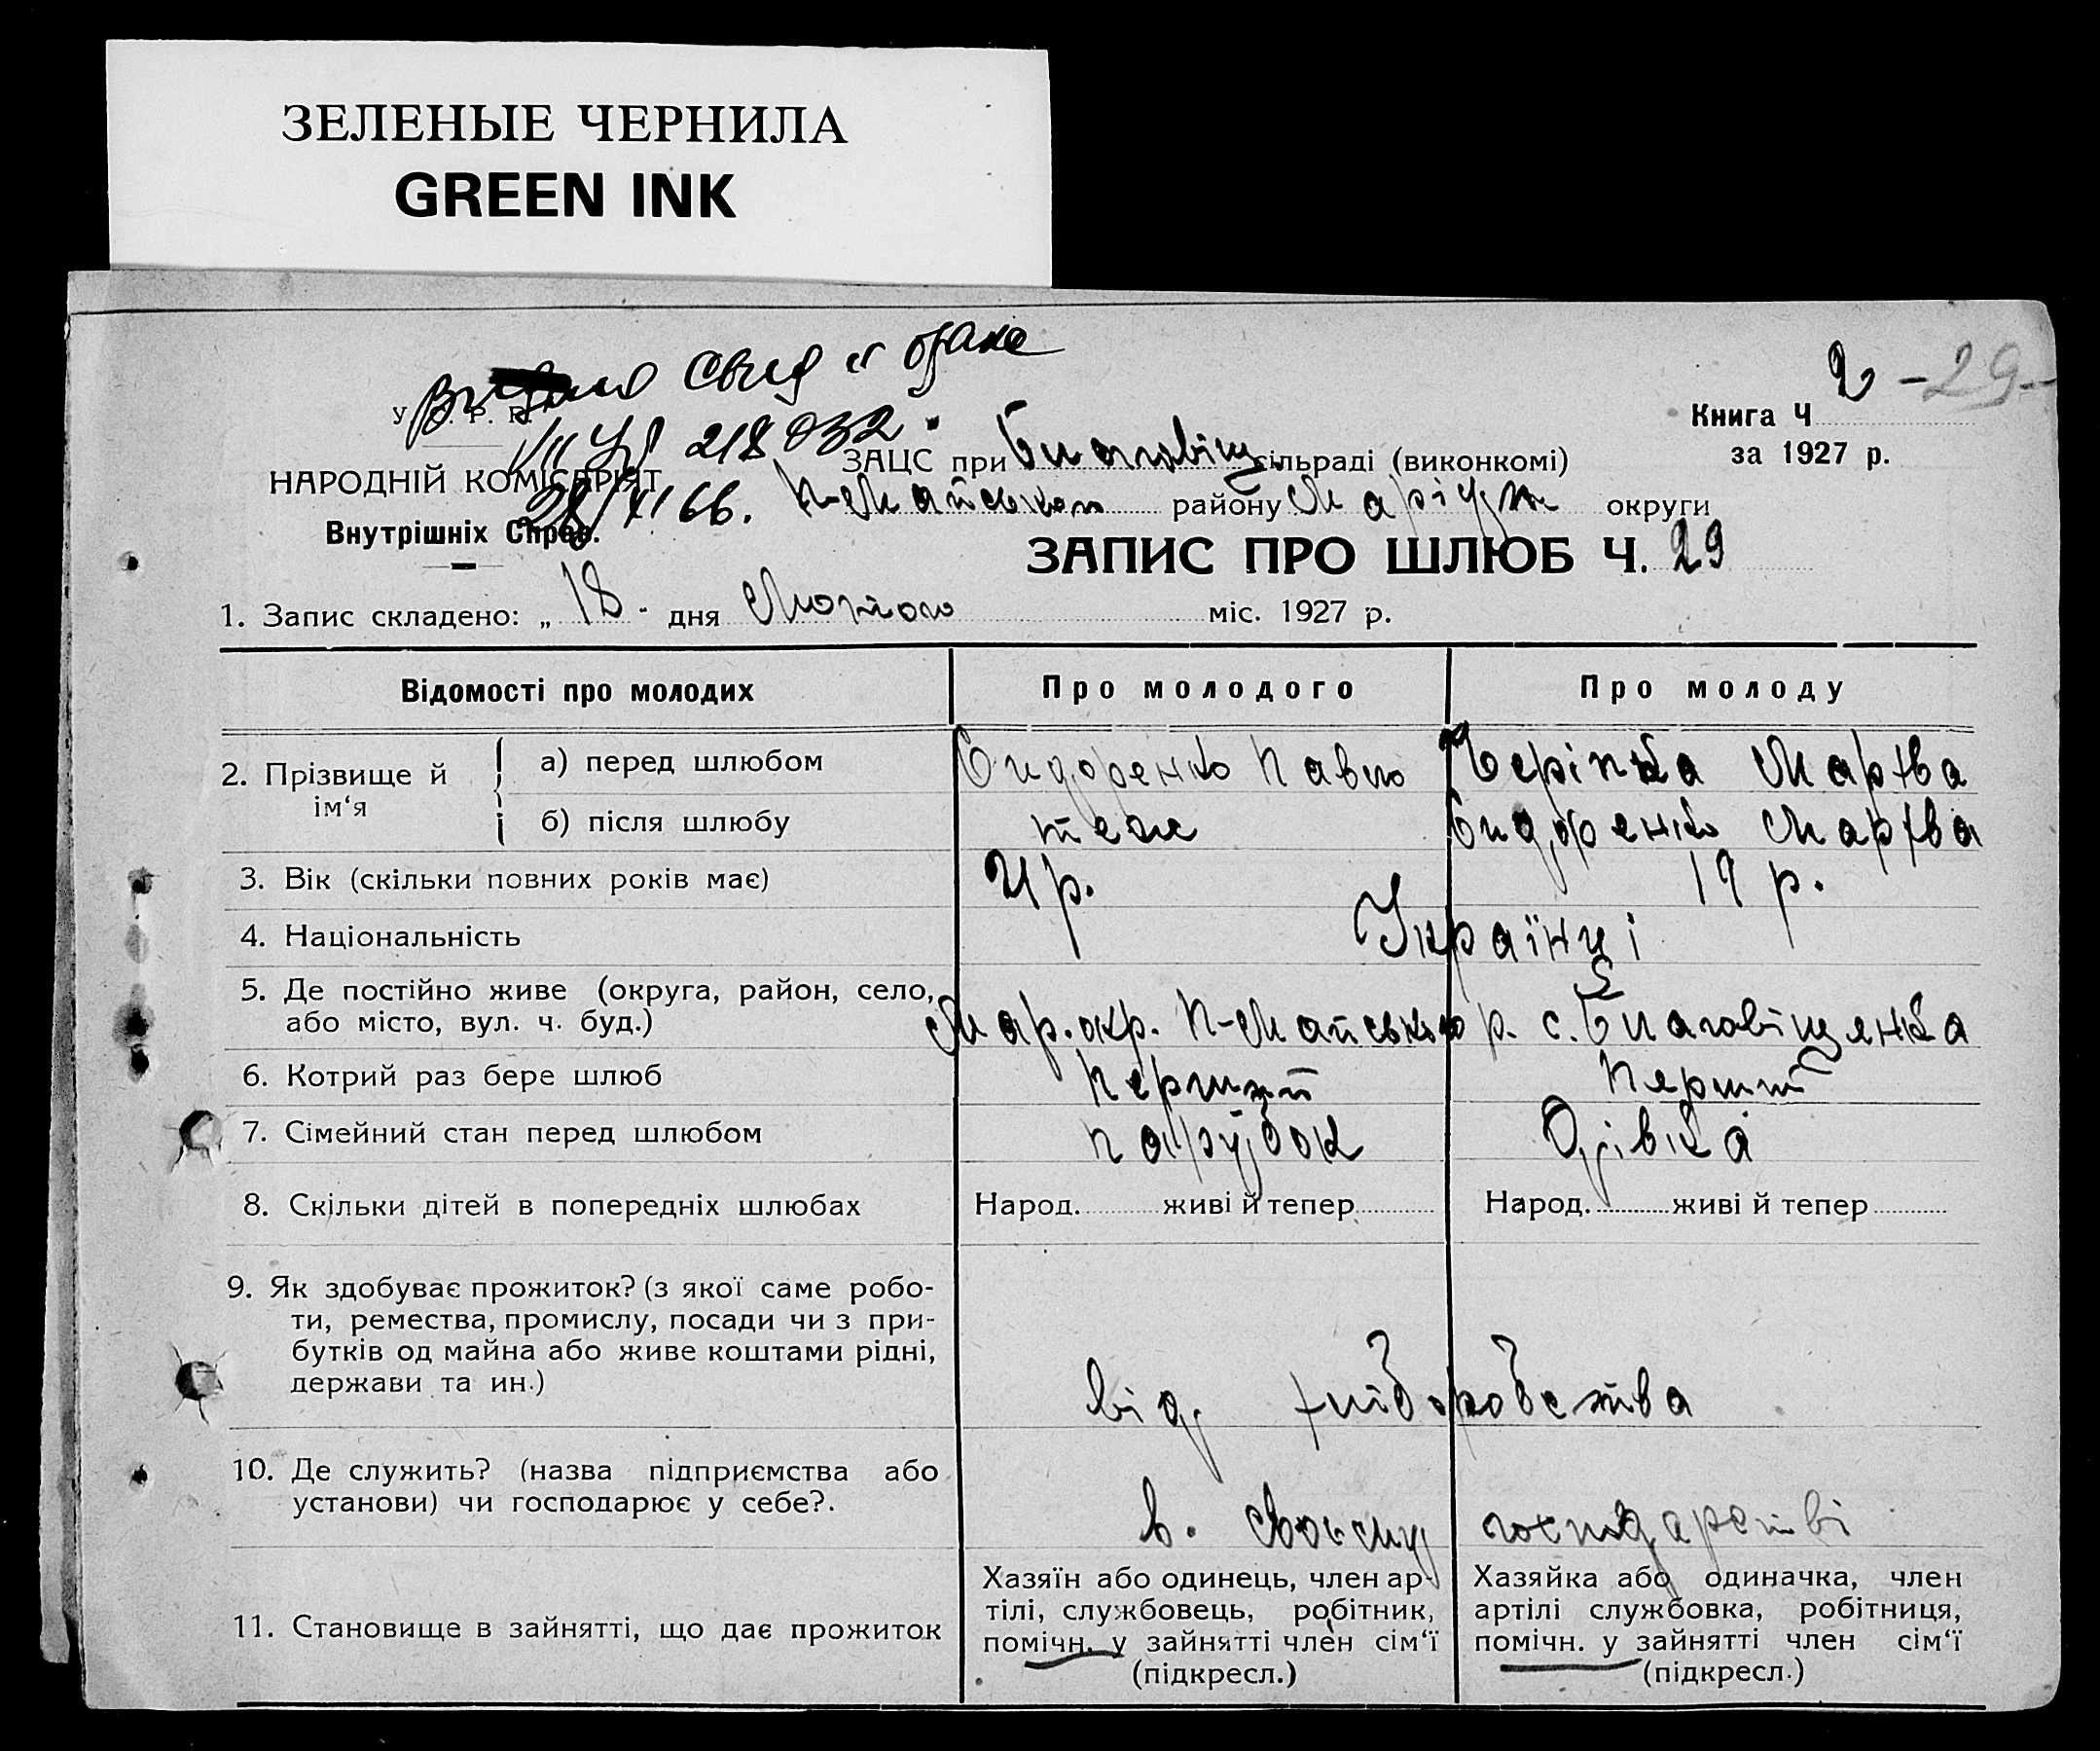 ЗЕЛЕНЫЕ ЧЕРНИЛА
GREEN INK
свид о браке
218032
66.
2 -29-
Книга Ч
за 1927 р.
У. С. Р. Р.
НАРОДНІЙ КОМІСАРІЯТ
Внутрішніх Справ.
ЗАЦС при Благовіщ. сільраді (виконкомі)
району Маріуп округи
ЗАПИС ПРО ШЛЮБ Ч. 29
1. Запис складено: „ 18 - дня Лютого міс. 1927 р.
Відомості про молодих Про молодого Про молоду
2. Прізвище й ім‘я
а) перед шлюбом Сидоренко Павло Марфва
б) після шлюбу теж Сидоренко Марфва
3. Вік (скільки повних років має) 21 р. 19 р.
4. Національність Українці
5. Де постійно живе (округа, район, село,
або місто, вул. ч. буд.) Мар. окр. П-Майського р. с. Благовіщенка
6. Котрий раз бере шлюб Перший Перший
7. Сімейний стан перед шлюбом парубок Дівка
8. Скільки дітей в попередніх шлюбах Народ. живі й тепер Народ. живі й тепер
9. Як здобуває прожиток? (з якої саме робо-
ти, ремества, промислу, посади чи з при-
бутків од майна або живе коштами рідні,
держави та ин.) від хліборобства
10. Де служить? (назва підприємства або
установи) чи господарює у себе?. в. своєму господарстві
11. Становище в зайнятті, що дає прожиток
Хазяїн або одинець, член ар-
тілі, службовець, робітник,
помічн. у зайнятті член сім‘ї
(підкресл.)
Хазяйка або одиначка, член
артілі службовка, робітниця,
помічн. у зайнятті член сім‘ї
(підкресл.)